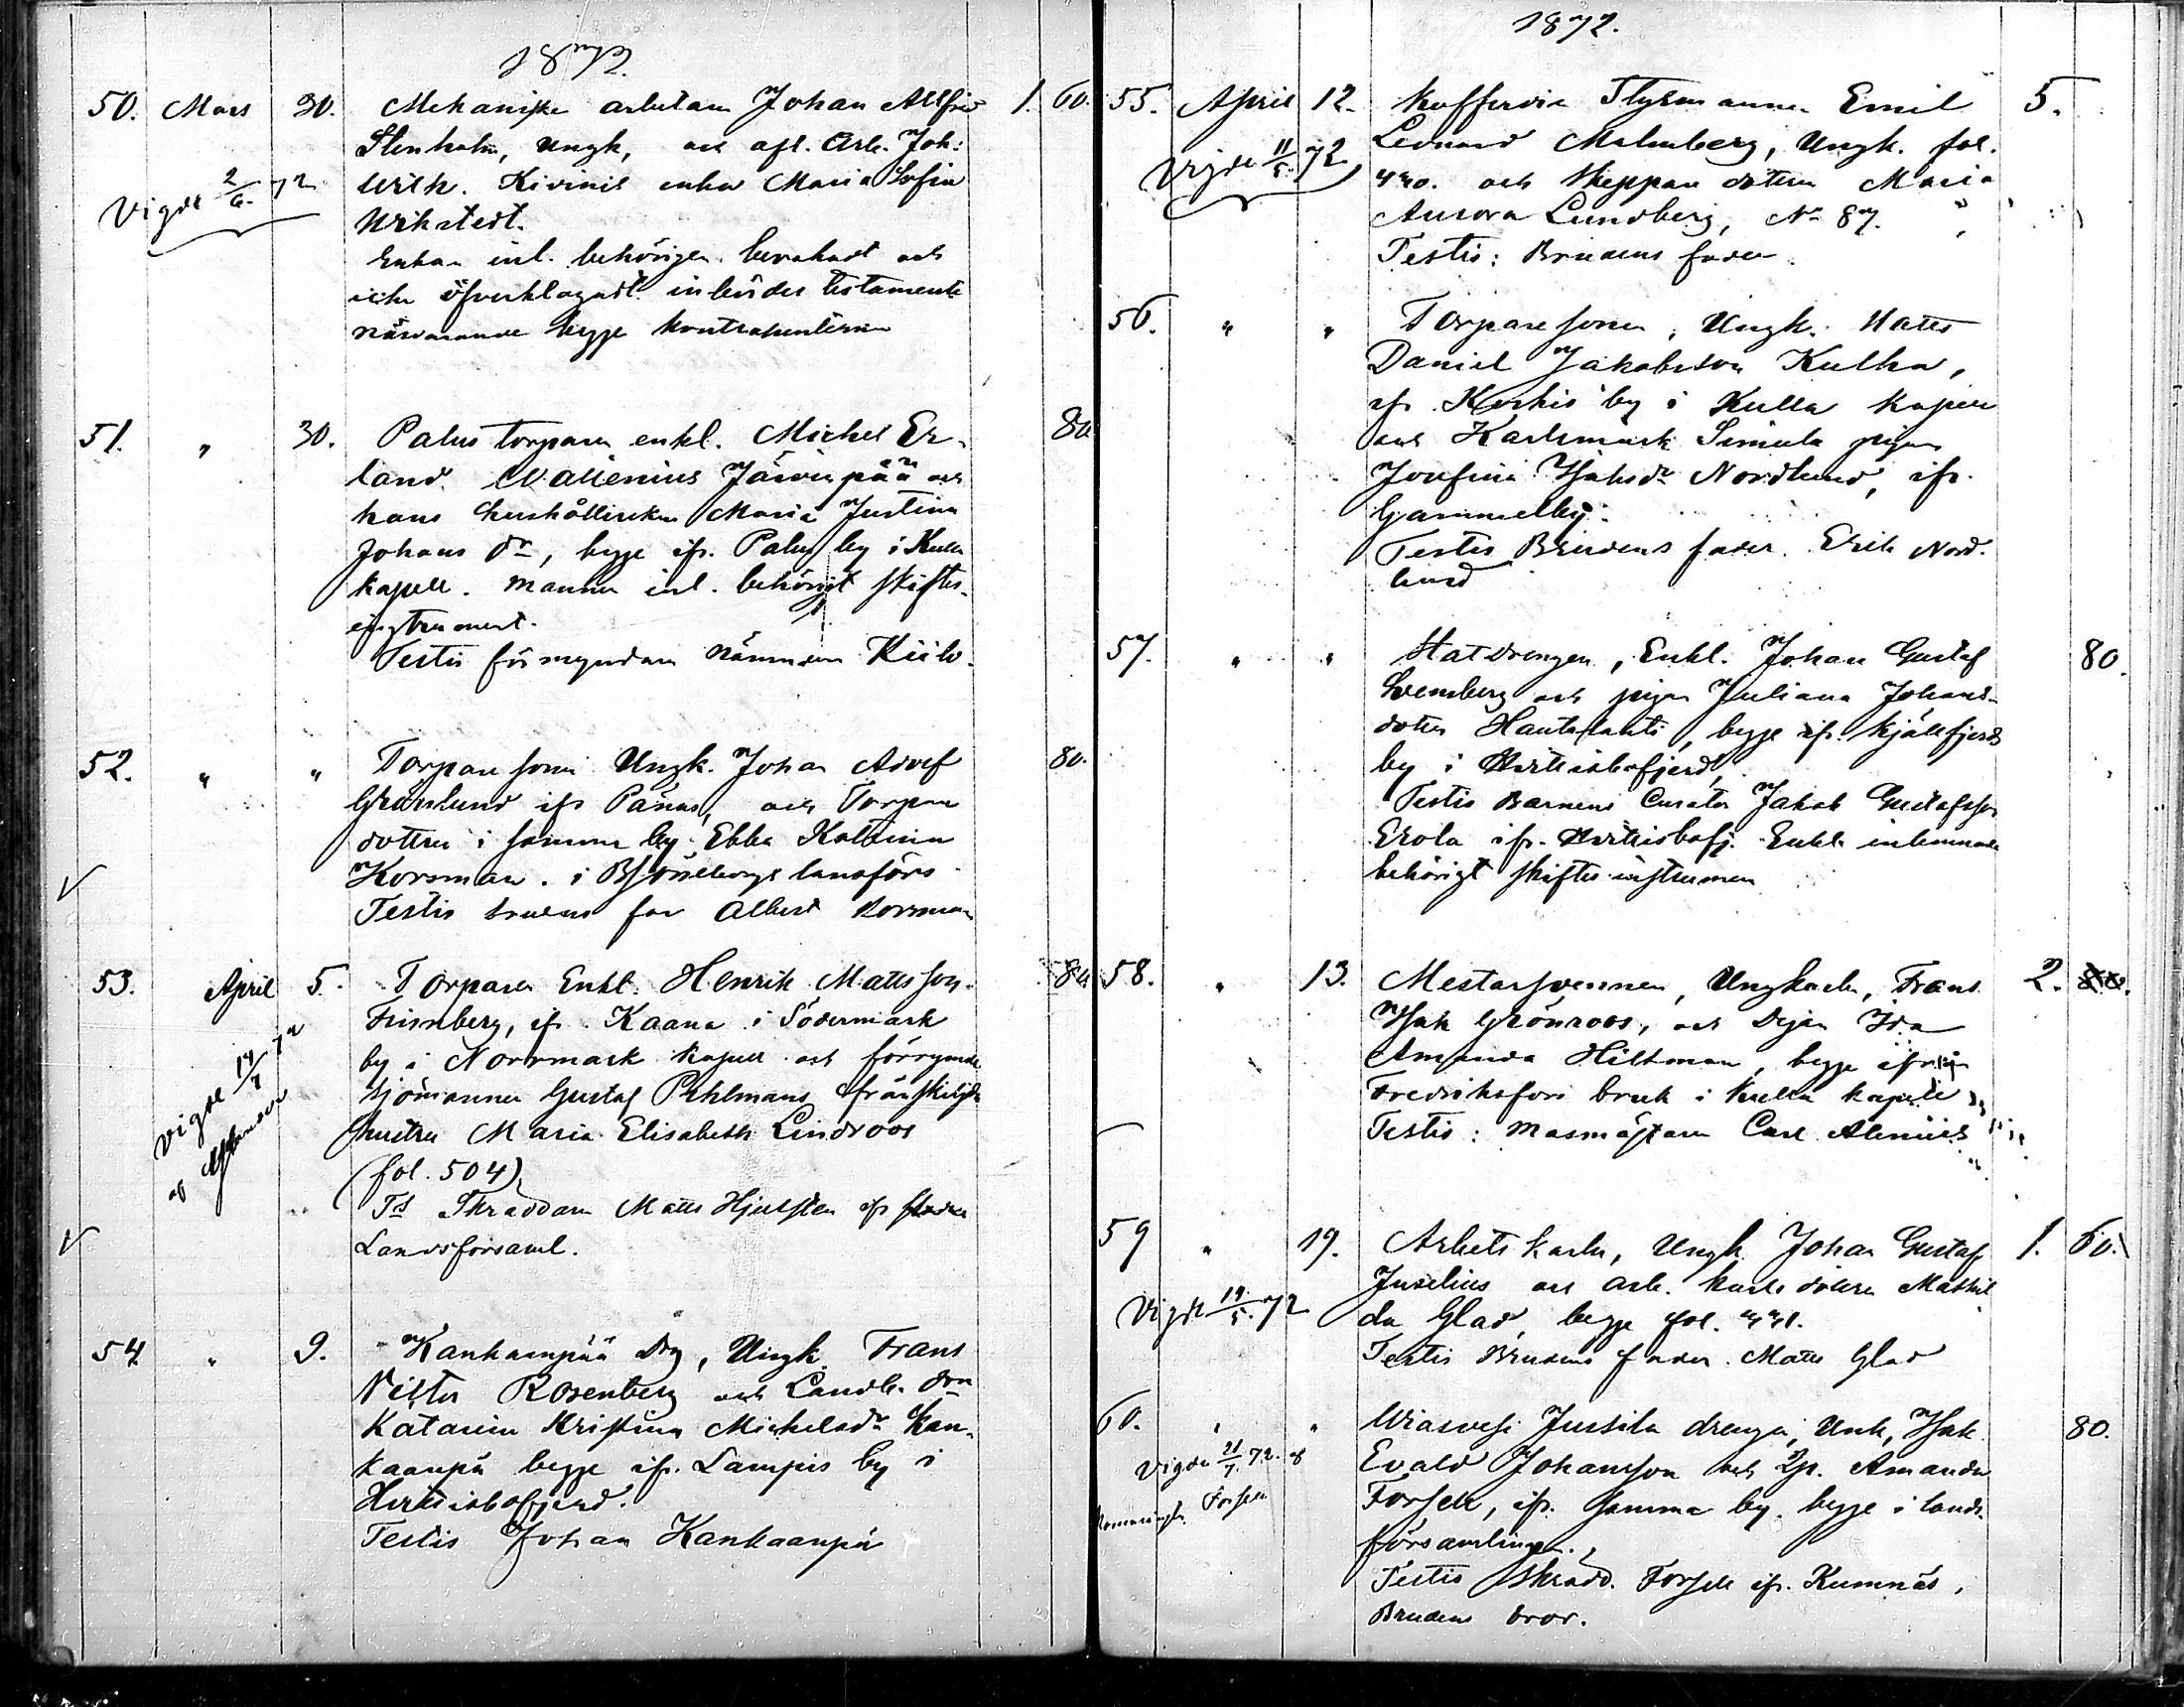 1872.
50. Mars 30. Mekaniske arbetaren Johan Alfrid 1. 60.
Stenholm, Ungk, och afl. Arb. Joh:
Vigde 2/6. 72 Wilh. Kivinis enka Maria Sofia
Wikstedt.
Enkan inl. behörigen bevakadt och
icke öfverklagadt inbördes testamente
närvarande begge kontrahenterna
51. " 30. Palus torparen enkl. Michel Er- 80
land Wallenius Järvenpää och
hans hushållerskan Maria Justina
Johans dr, begge ifr. Palus by i Kulla
kapell. Mannen inl. behörigt skiftes-
instrument.
Testis förmyndaren Nämndem Kiilo.
52. " " Torpare sonen Ungk. Johan Adolf 80.
Grönlund ifr Pånäs, och Torpare
dottren i samma by Ebba Katarina
V Korsman. i Björneborgs landsförs
Testis brudens far Albert Korsman
53. April 5. Torparen Enkl. Henrik Mattsson 80
Frimberg, ifr. Kaana i Södermark
by i Norrmark kapell och förrymde
Vigde 14/7 72
af
sjömannen Gustaf Pehlmans frånskilgda
hustru Maria Elisabeth Lindroos
(fol. 504)
Ts Skraddaren Matts Hjulsten ifr
V Landsförsaml.
54. " 9. Kankaanpää Drg, Ungk. Frans
Viktor Rosenberg och Landb. dra
Katarina Kristina Michelsdr Kan-
kaanpä begge ifr. Lampis by i
Hvittisbofjerd.
Testis Johan Kankaanpä
1872.
55. April 12. Kofferdie Styrmannen Emil 5.
Leonard Malmberg, Ungk. fol.
Vigde 11/5. 72 440. och Skeppare dottren Maria
Aurora Lundberg, No 87.
Testis: Brudens fader.
56. " " Torpare sonen, Ungk. Matts
Daniel Jakobsson Kulha,
ifr. Koskis by i Kulla kapell
och Karlsmark Simula pigan
Josefina Isaksdr Nordlund, ifr.
Gammelby.
Testis Brudens fader. Erik Nord-
lund
57. " " Statdrengen, Enkl. Johan Gustaf 80.
Svensberg och pigan Juliana Johans-
dotter Hautalahti, begge ifr. Kjällfjerds
by i Hvittisbofjerd,
Testis Barnens Curator Jakob Gustafsson
Erola ifr. Hvittisbofj. Enkl. inlemnade
behörigt skiftes instrumen
58. " 13. Mestarsvennen, Ungkarlen, Frans 2. 80.
Isak Grönroos, och Pigan Ida
Amanda Hiltman, begge ifrån
Fredriksfors bruk i Kulla kapell
Testis: Masmästaren Carl Alenius
59 " 19. Arbets karlen, Ungk. Johan Gustaf 1. 60.
Juselius och arb. karls dottren Mathil
Vigde 19./5. 72 da Glad, begge fol. 441.
Testis Brudens fader. Matts Glad
60. " " Wiasvesi Jussila drengen, Unk, Isak 80.
Vigde 21/7. 72. af Evald Johansson och Pp. Amanda
Forsell Forsell, ifr. samma by. begge i lands-
församlingen.
Testis Skrädd. Forsell ifr. Kumnäs,
Brudens bror.